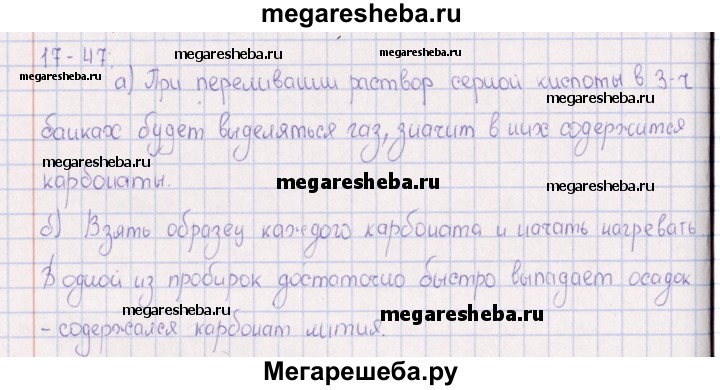 megaresheba.ru
17-47.
megaresheba.ru
megaresheba.ru
megaresheba.ru
а) При переливании раствор серной кислоты в 3-х
megaresheba.ru
банках будет выделяться газ, значит в них содержится
megaresheba.ru
megaresheba.ru
megaresheba.ru
карбонаты.
б) Взять образец каждого карбоната и начать нагревать
В одной из пробирок достаточно быстро выпадает осадок
megaresheba.ru
megaresheba.ru
-содержался карбонат лития.
Мегарешеба.ру